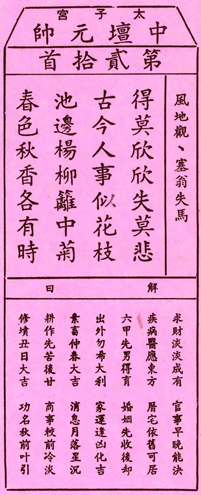 太子宮
中壇元帥
第貳拾首
風地觀、塞翁失馬
得莫欣欣失莫悲
古今人事似花枝
池邊楊柳籬中菊
春色秋香各有時
解曰
求財淡淡成有 官事早晚能決
疾病醫應東方 厝宅依舊可居
六甲先男得育 婚姻先收後却
出外勿希大利 家運逢凶化吉
素畜仲春大吉 消息月落星沉
耕作先苦後甘 商事較前冷淡
修墳丑日大吉 功名秋前葉引